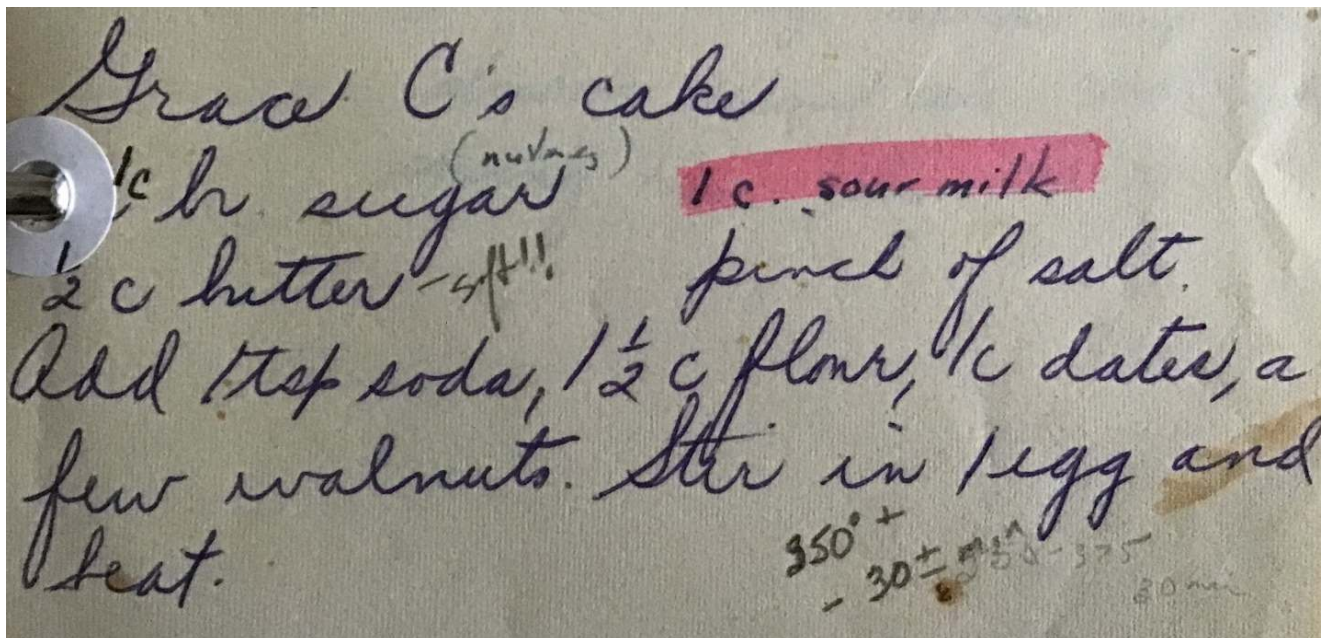 Grace C's cake
(nutmeg)
1c br. sugar 1 c. sour milk
1/2 c butter - soft!!! pinch of salt.
Add 1 tsp soda, 1 1/2 c flour, 1c dates, a
few walnuts. Stir in 1 egg and
beat.
350° +
- 30 ± min 350-375
30 min